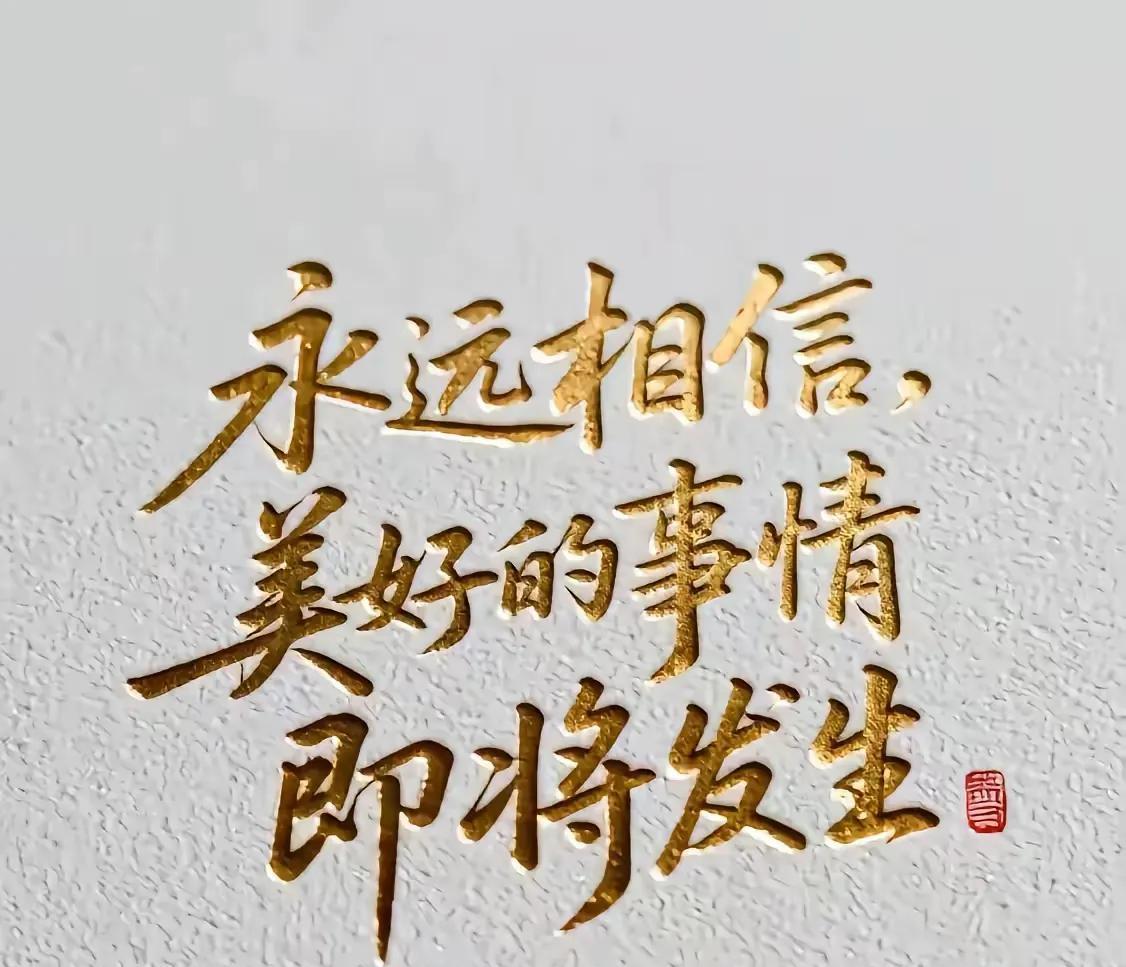 永远相信，
美好的事情
即将发生